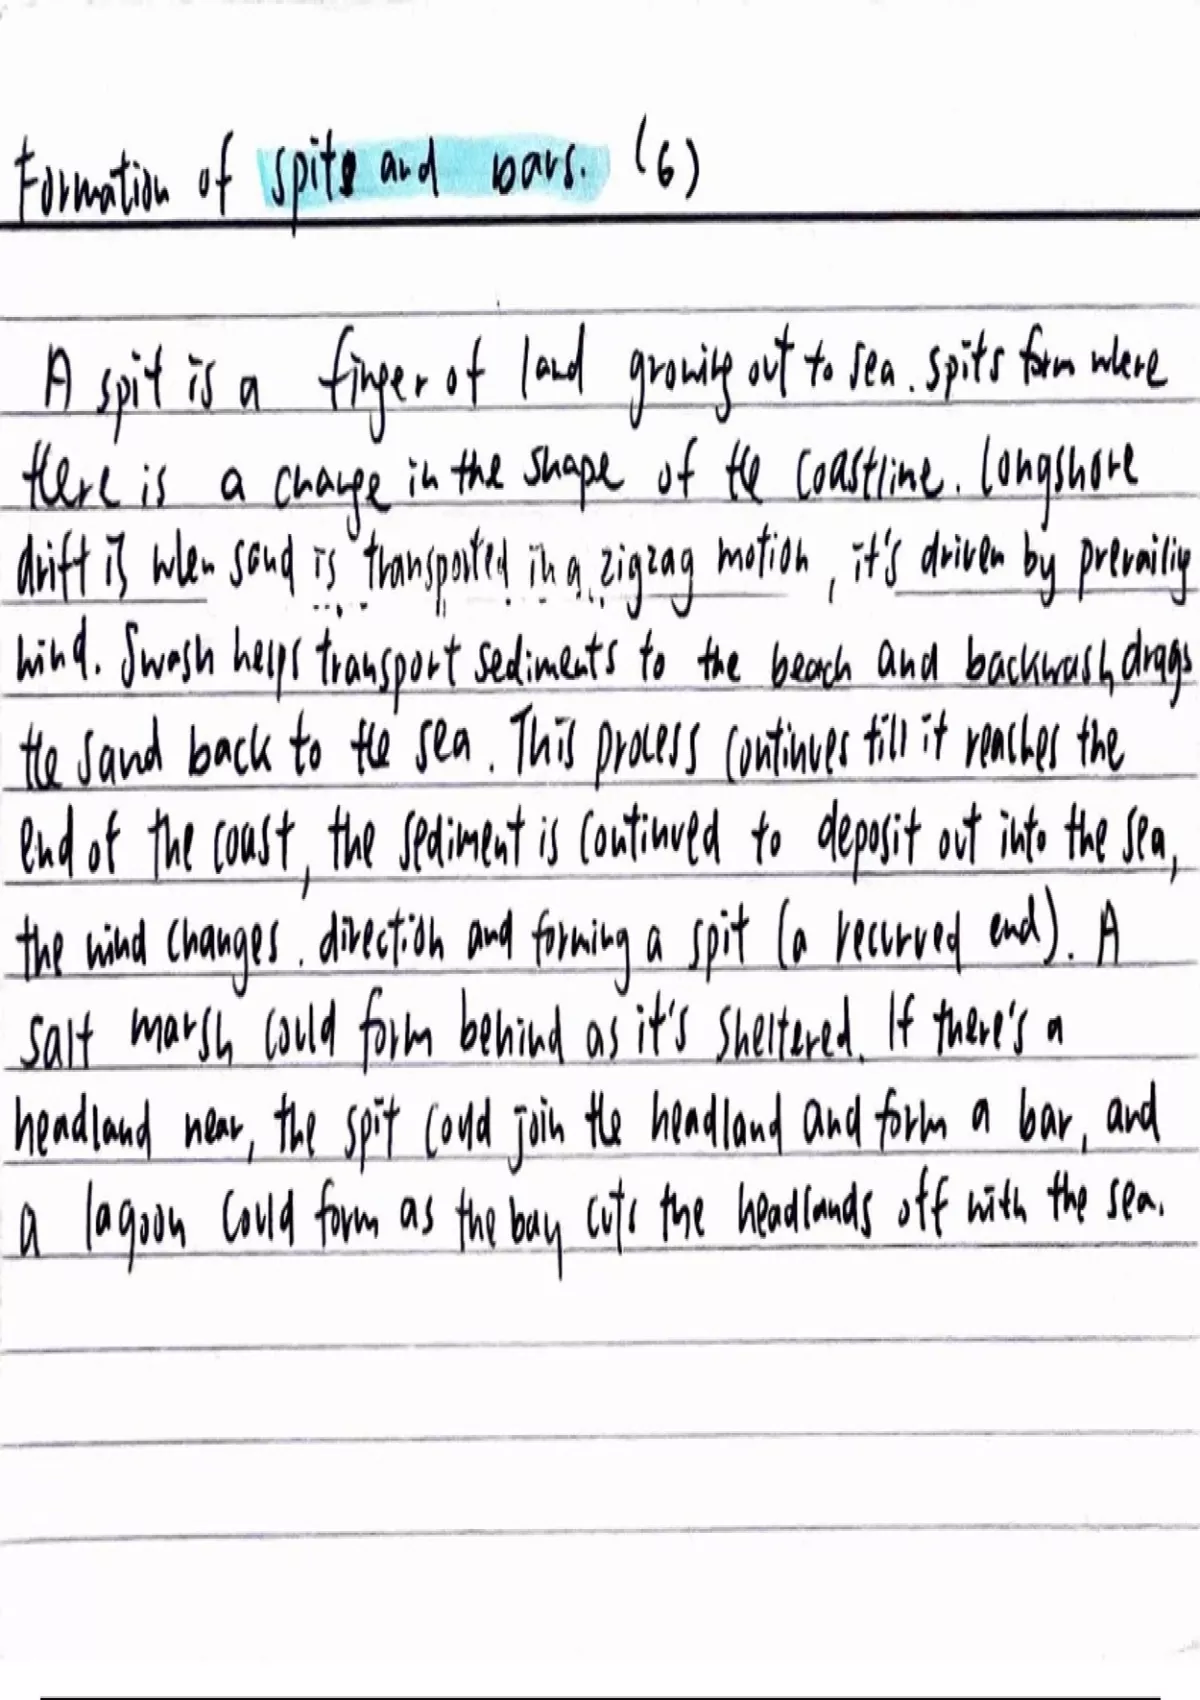 Formation of spits and bars. (6)
A spit is a finger of land growing out to sea. spits form where
there is a change in the shape of the coastline. Longshore
drift is when sand is transported in a zigzag motion, it's driven by prevailing
wind. Swash helps transport sediments to the beach and backwash drags
the sand back to the sea. This process continues till it reaches the
end of the coast, the sediment is continued to deposit out into the sea,
the wind changes direction and forming a spit (a recurved end). A
salt marsh could form behind as it's sheltered. If there's a
headland near, the spit could join the headland and form a bar, and
a lagoon could form as the bay cuts the headlands off with the sea.